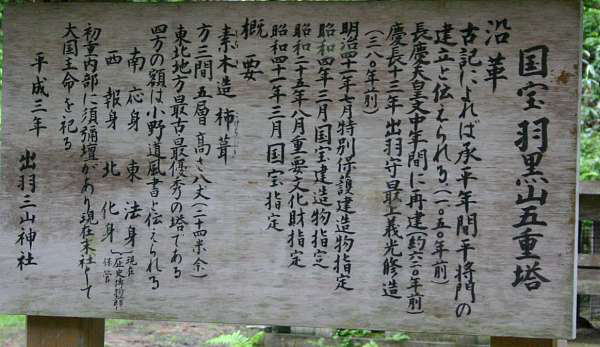 国宝羽黒山五重塔
沿革
古記によれば承平年間平将門の
建立と伝えられる(一〇五〇年前)
長慶天皇文中年間に再建(約六二〇年前)
慶長十三年 出羽守最上義光修造
(三八〇年前)
明治四十一年七月特別保護建造物指定
昭和四年三月国宝建造物指定
昭和二十五年八月重要文化財指定
昭和四十一年三月国宝指定
概要
素木造 杮葺
方三間五層 高さ八丈(二十四米余)
東北地方最古最優秀の塔である
四方の額は小野道風書と伝えられる
南 応身 東 法身
西 報身 北 化身
(現在 歴史博物館 保管)
初重内部に須彌壇があり現在末社として
大国主命を祀る
平成三年 出羽三山神社